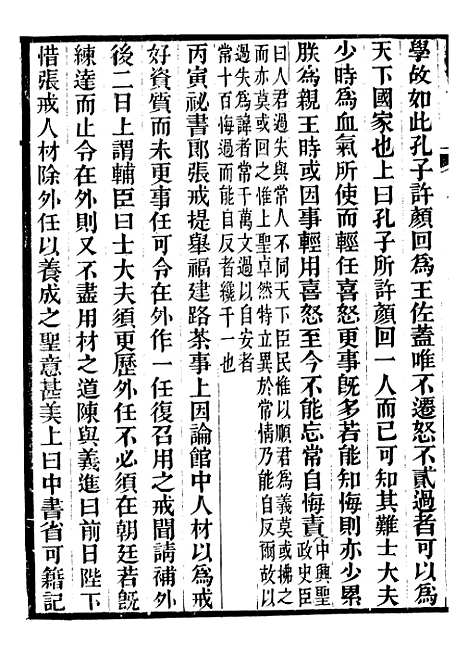 學故如此孔子許顏回爲王佐蓋唯不遷怒不貳過者可以爲
天下國家也上曰孔子所許顏回一人而已可知其難士大夫
少時爲血氣所使而輕任喜怒更事旣多若能知悔則亦少累
朕爲親王時或因事輕用喜怒至今不能忘常自悔責中興聖
政史臣
曰人君過失與常人不同天下臣民惟以順君爲義莫或拂之
而亦莫或回之惟上聖卓然特立異於常情乃能自反爾故以
過失爲諱者常千萬文過以自安者
常十百悔過而能自反者纔千一也
丙寅祕書郎張戒提舉福建路茶事上因論館中人材以爲戒
好資質而未更事任可令在外作一任復召用之戒聞請補外
後二日上謂輔臣曰士大夫須更歷外任不必須在朝廷若旣
練達而止令在外則又不盡用材之道陳與義進曰前日陛下
惜張戒人材除外任以養成之聖意甚美上曰中書省可籍記